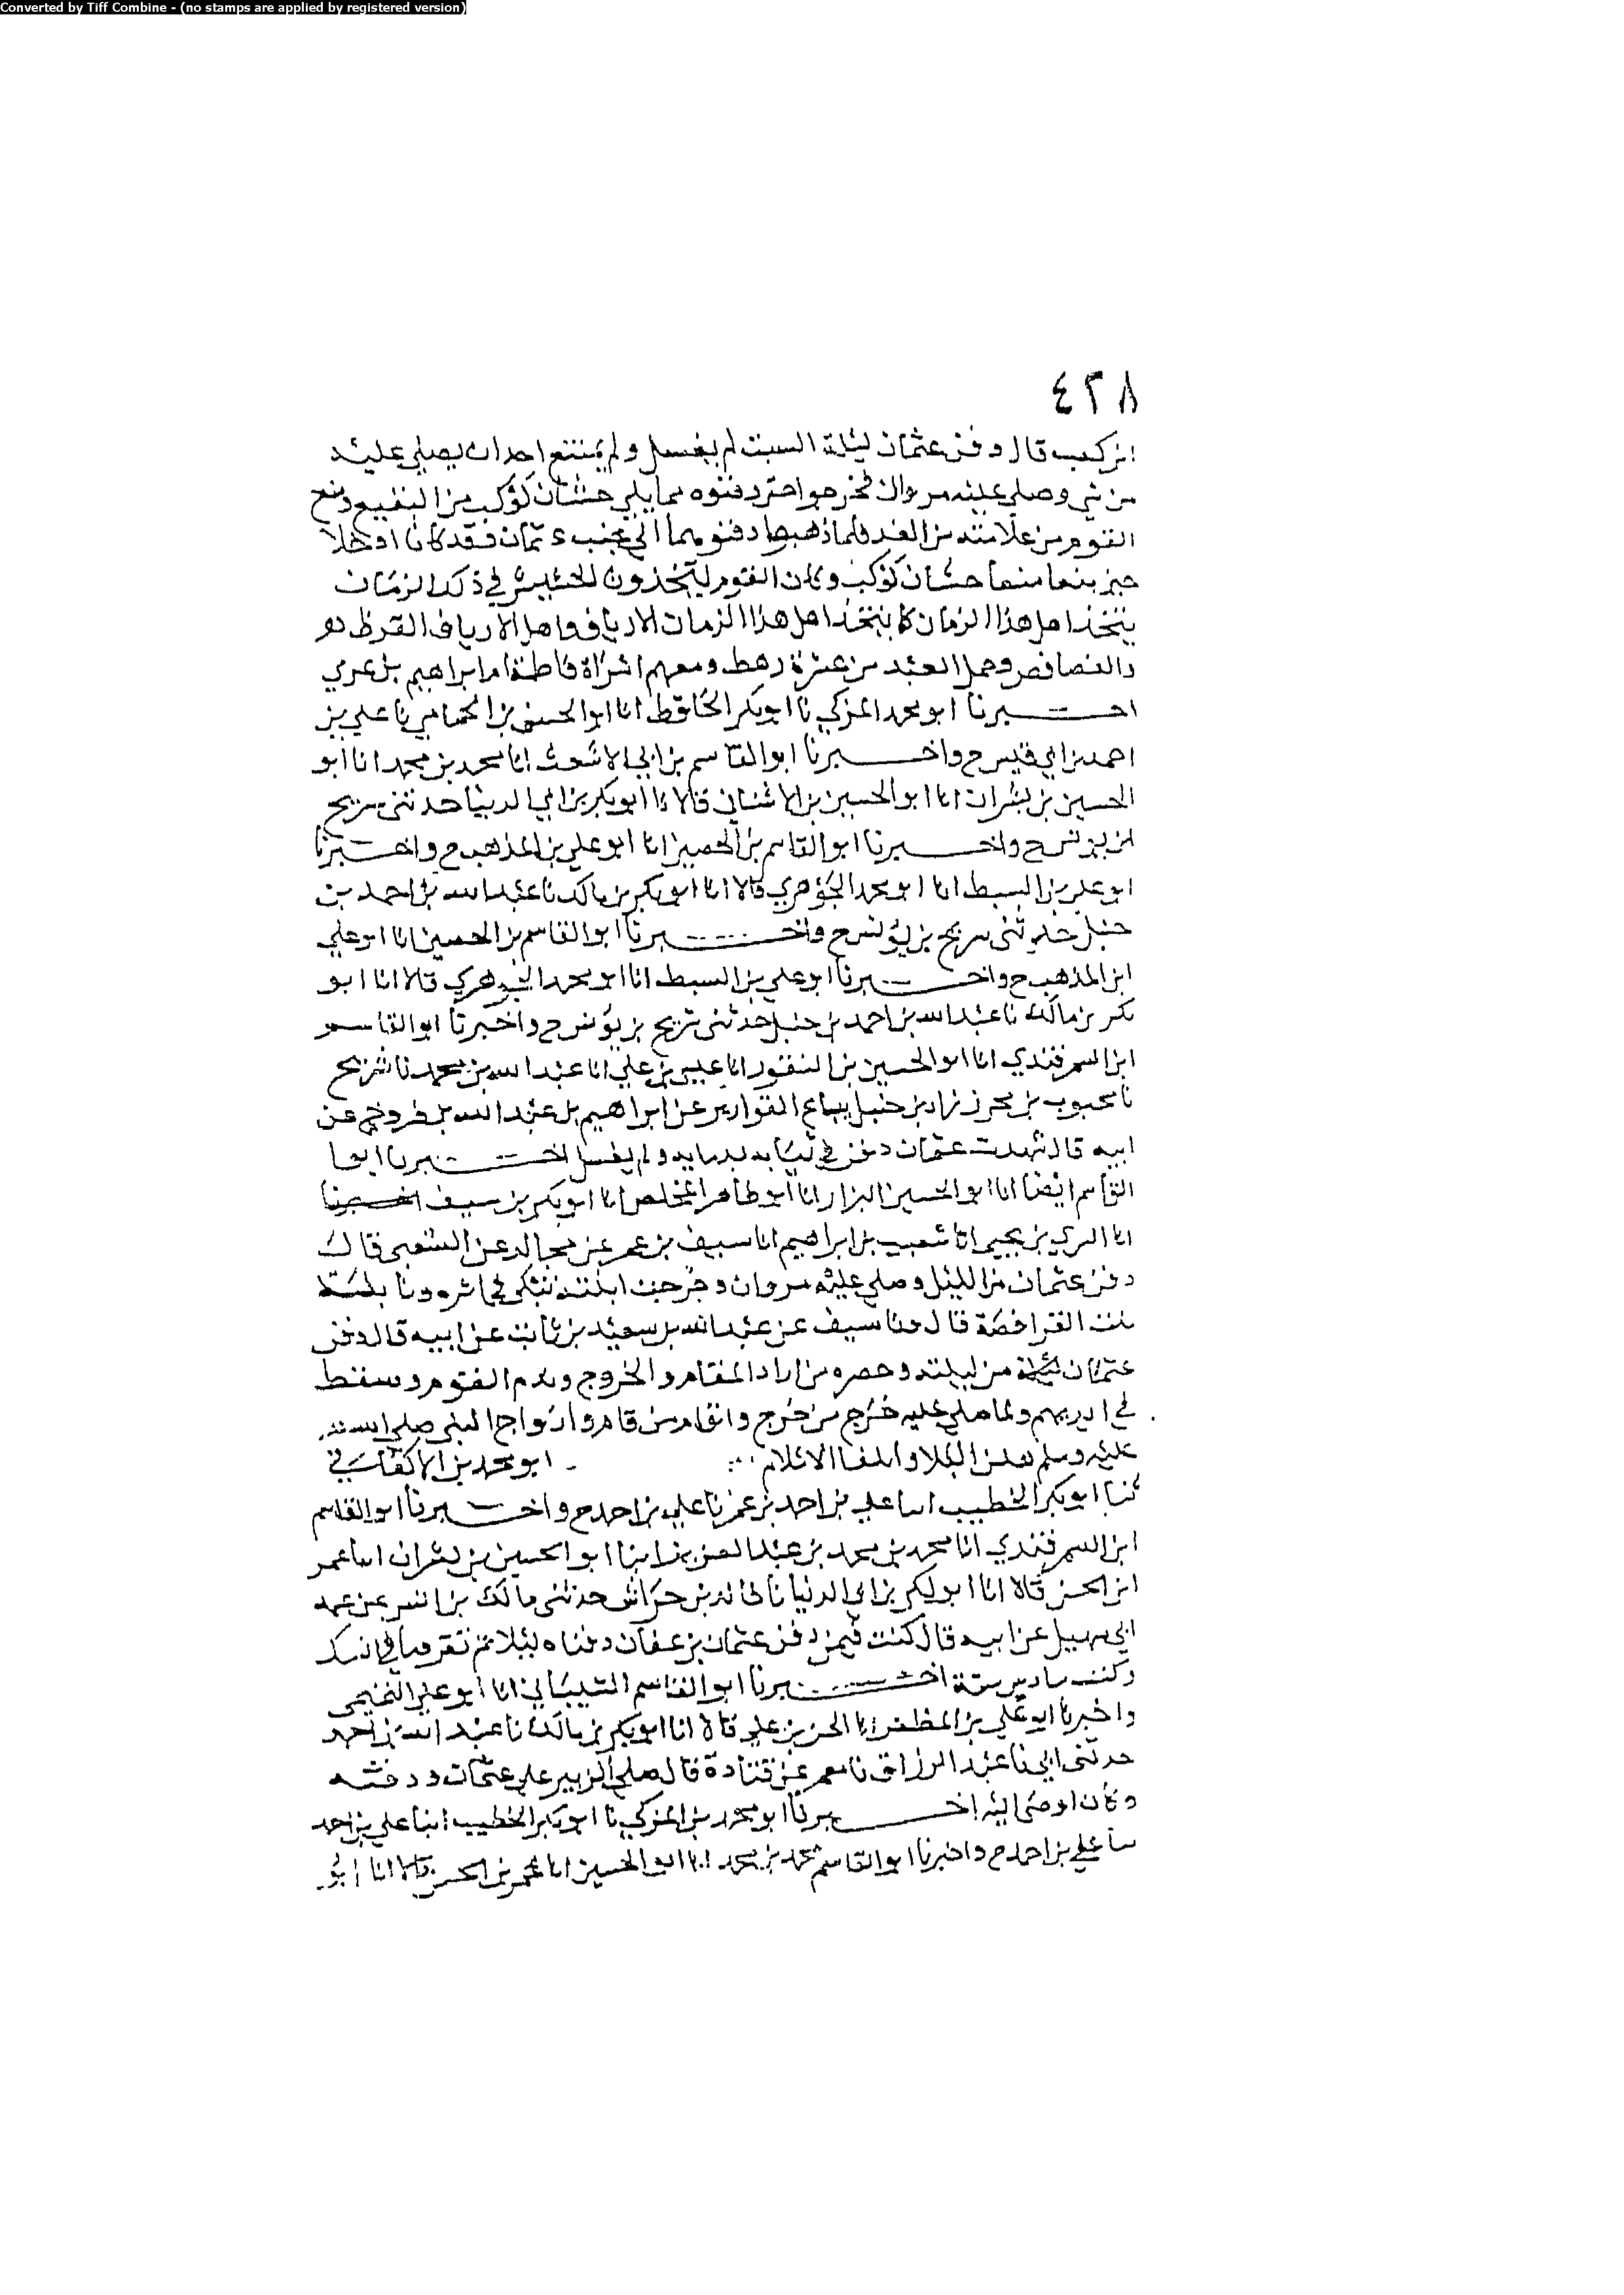 Converted by Tiff Combine - (no stamps are applied by registered version)
٤٢٨
ابن كعب قال دفن عثمان ليلة السبت لم يغسل ولم يمتنع احد ان يصلي عليه
من شي وصلى عليه مروان فخرجوا حتى دفنوه مما يلي حشان كوكب من البقيع ومنع
القوم من علامته من الغد فلما ذهبوا دفنوهما الى جنب عثمان فقد كانا ادخلا
حين منعا منها حشان كوكب وكان القوم يتخذون الحشيش في ذلك الزمان
يتخذ اهل هذا الزمان كما يتخذ اهل هذا الزمان الارياف واهل الارياف القرظ
والفصافص وحمل العبد من عشرة رهط ومعهم امراة فاطمة ام ابراهيم بن عربي
اخبرنا ابو محمد المزكي نا ابو بكر الحافظ انا ابو الحسن بن الحمامي نا علي بن
احمد بن ابي قيس ح واخبرنا ابو القاسم بن ابي الاشعث انا محمد بن محمد انا ابو
الحسين بن بشران انا ابو الحسين بن الاشناني قالا نا ابو بكر بن ابي الدنيا حدثني سريج
بن يونس ح واخبرنا ابو القاسم بن الحصين انا ابو علي بن المذهب ح واخبرنا
ابو علي بن السبط انا ابو محمد الجوهري قالا انا ابو بكر بن مالك نا عبد الله بن احمد بن
حنبل حدثني سريج بن يونس ح واخبرنا ابو القاسم بن الحصين انا ابو علي
ابن المذهب ح واخبرنا ابو علي بن السبط انا ابو محمد الجوهري قالا انا ابو
بكر بن مالك نا عبد الله بن احمد بن حنبل حدثني سريج بن يونس ح واخبرنا ابو القاسم
ابن السمرقندي انا ابو الحسين بن النقور انا عيسى بن علي انا عبد الله بن محمد نا شريح
نا محبوب بن محرز بن حنبل بياع القوارير عن ابراهيم بن عبد الله بن فروخ عن
ابيه قال شهدت عثمان دفن في ثيابه بدمايه ولم يغسل اخبرنا ابوا
القاسم ايضا انا ابو الحسين البزار انا ابو طاهر المخلص انا ابو بكر بن سيف اخبرنا
انا السري بن يحيى انا شعيب بن ابراهيم انا سيف بن عمر عن مجالد عن الشعبي قال
دفن عثمان من الليل وصلى عليه مروان وخرجت ابنته تبكي في اثره ونايلة
بنت الفرافصة قال ونا سيف عن عبد الله بن سعيد بن ثابت عن ابيه قال دفن
عثمان ليلة من ليلته وحصره من اراد المقام والخروج وندم القوم وسقط
في ايديهم ولما صلي عليه خرج من خرج واقام من قام وازواج النبي صلى الله
عليه وسلم ابو محمد بن الاكفاني
نا ابو بكر الخطيب انا علي بن احمد بن عمر نا علي بن احمد ح واخبرنا ابو القاسم
ابن السمرقندي انا محمد بن محمد بن عبد العزيز انبا ابو الحسين بن بشران انا عمر
ابن الحسن قالا انا ابو بكر بن ابي الدنيا نا خالد بن خراش حدثني مالك بن انس عن عمه
ابي سهيل عن ابيه قال كنت فيمن دفن عثمان بن عفان دفناه ليلا ثم تفرقنا في
وكنت سادس ستة اخبرنا ابو القاسم الشيباني انا ابو علي التميمي
واخبرنا ابو علي بن المظفر انا الحسن بن علي قالا انا ابو بكر بن مالك نا عبد الله بن احمد
حدثني ابي نا عبد الرزاق نا معمر عن قتادة قال صلى الزبير على عثمان ودفنه
وكان اوصى اليه اخبرنا ابو محمد بن المزكي نا ابو بكر الخطيب انبا علي بن احمد
نا علي بن احمد ح واخبرنا ابو القاسم محمد بن محمد انا ابو الحسين انا عمر بن الحسن قالا انا ابو